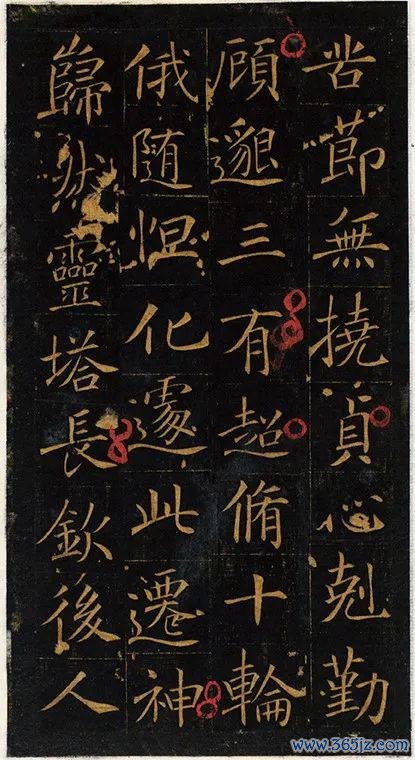 苦莭無撓貞心剋勤
頋邈三有超脩十輪
俄随怛化遽此遷神
巋然靈塔長欽後人
www.365jz.com